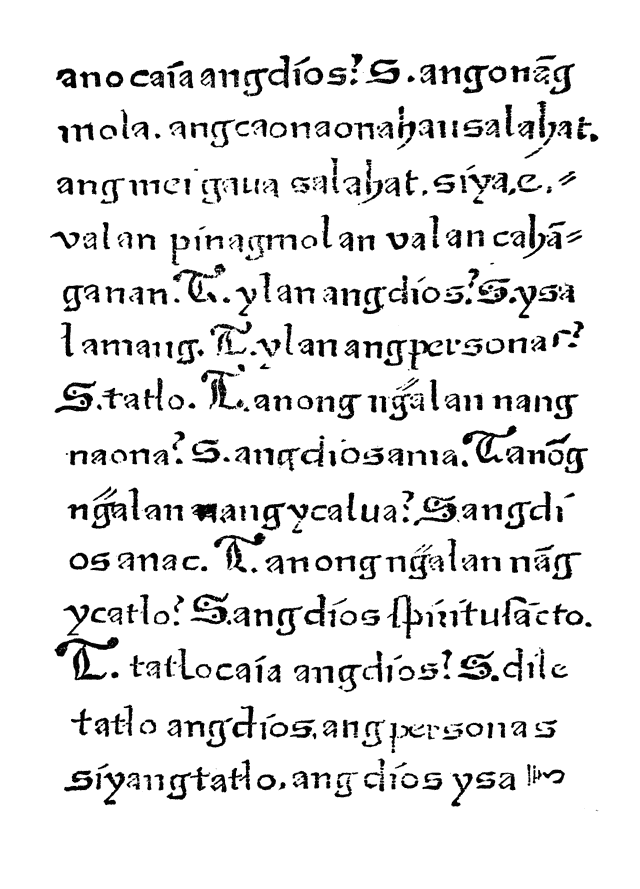 ano caía ang díos? S. ang onãg
mola. ang caonaonahan salahat.
ang mei gaua salahat. síya,e, ⸗
valan pínagmolan valan cahã⸗
ganan. T. ylan ang díos? S. ysa
lamang. T. ylan ang personas?
S. tatlo. T. anong ng̃alan nang
naona? S. ang díos ama. T anõg
ng̃alan nang ycalua? S ang dí
os anac. T. anong ng̃alan nãg
ycatlo? S. ang díos spíritu sãcto.
T. tatlo caía ang díos? S. díle
tatlo ang díos, ang personas
síyang tatlo, ang díos ysa